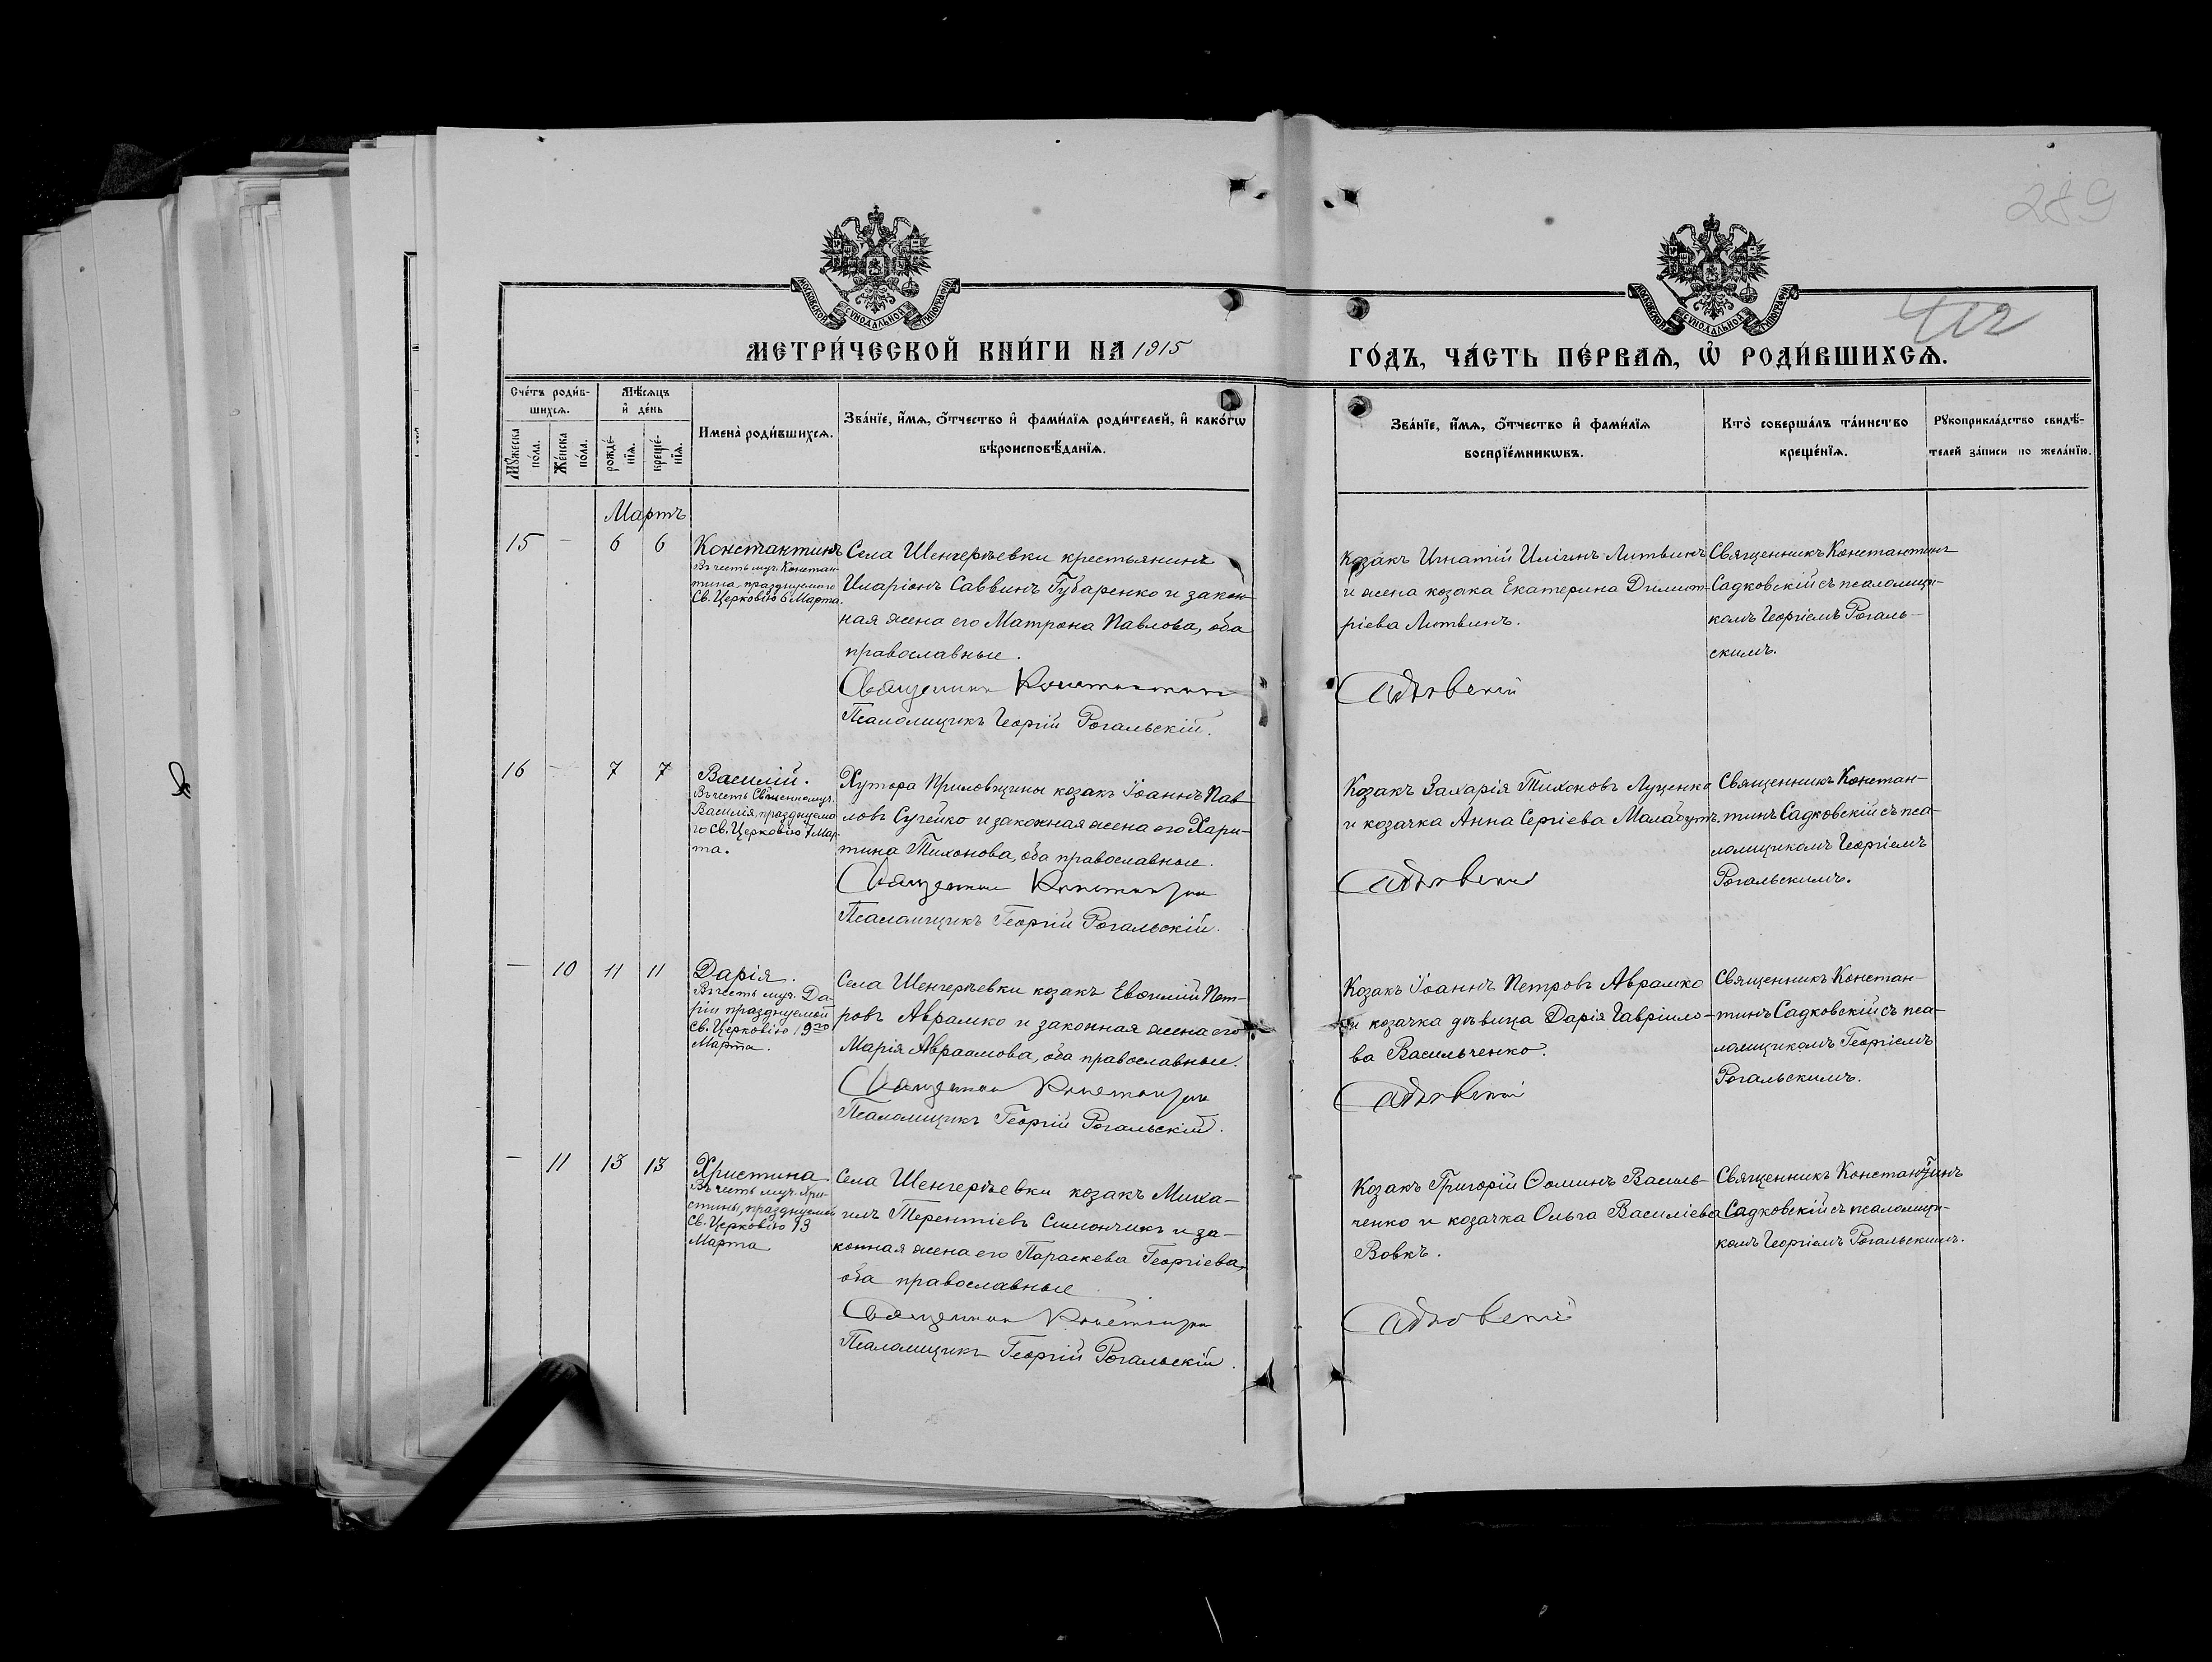 289
412
МОСКОВСКОЙ СѴНОДАЛЬНОЙ ТИПОГРАФІИ
МОСКОВСКОЙ СѴНОДАЛЬНОЙ ТИПОГРАФІИ
МЕТРИ́ЧЕСКОЙ КНИ́ГИ НА 1915
ГО́ДЪ, ЧА́СТЬ ПЕ́РВАѦ, Ѡ҆ РОДИ́ВШИХСѦ.
Сче́тъ роди́в-
шихсѧ.
Мꙋ́жеска
по́ла.
Же́нска
по́ла.
Мѣ́сѧцъ
и҆ де́нь
рожде́-
нїѧ.
креще́-
нїѧ.
Имена̀ роди́вшихсѧ.
Зва́нїе, и҆́мѧ, о҆́тчество и҆ фами́лїѧ роди́телей, и҆ како́гѡ
вѣроисповѣ́данїѧ.
Зва́нїе, и҆́мѧ, о҆́тчество и҆ фами́лїѧ
воспрїе́мникѡвъ.
Кто̀ соверша́лъ та́инство
креще́нїѧ.
Рꙋкоприкла́дство свидѣ́-
телей за́писи по жела́нїю.
Мартъ
15 — 6 6
Константинъ
Въ честь муч. Констан-
тина празднуемаго
Св. Церковію 6 Марта.
Села Шенгерѣевки крестьянинъ
Иларіонъ Саввинъ Губаренко и закон-
ная жена его Матрона Павлова, оба
православные.
Священникъ Константинъ
Псаломщикъ Георгій Рогальскій.
Козакъ Игнатій Иліинъ Литвинъ
и жена козака Екатерина Димит-
ріева Литвинъ.
Садковскій
Священникъ Константинъ
Садковскій съ псаломщи-
комъ Георгіемъ Рогаль-
скимъ.
16 — 7 7
Василій.
Въ честь Священномуч.
Василія, празднуема-
го Св. Церковію 7 Мар-
та.
Хутора козакъ Іоаннъ Пав-
ловъ Сугейко и законная жена его Хари-
тина Тихонова, оба православные.
Священникъ Константинъ
Псаломщикъ Георгій Рогальскій.
Козакъ Захарія Тихоновъ Луценко
и козачка Анна Сергіева Малабутъ.
Садковскій
Священникъ Констан-
тинъ Садковскій съ пса-
ломщикомъ Георгіемъ
Рогальскимъ.
— 10 11 11
Дарія.
Въ честь муч. Да-
ріи празднуемой
Св. Церковію 19го
Марта.
Села Шенгерѣевки козакъ Евѳимій Пет-
ровъ Аврамко и законная жена его
Марія Авраамова, оба православные.
Священникъ Константинъ
Псаломщикъ Георгій Рогальскій.
Козакъ Іоаннъ Петровъ Аврамко
и козачка дѣвица Дарія Гавріило-
ва Васильченко.
Садковскій
Священникъ Констан-
тинъ Садковскій съ пса-
ломщикомъ Георгіемъ
Рогальскимъ.
— 11 13 13
Христина
Въ честь муч. Хри-
стины, празднуемой
Св. Церковію 13
Марта
Села Шенгерѣевки козакъ Миха-
илъ Терентіевъ Симончикъ и за-
конная жена его Параскева Георгіева,
оба православные
Священникъ Константинъ
Псаломщикъ Георгій Рогальскій.
Козакъ Григорій Ѳоминъ Василь-
ченко и козачка Ольга Василіева
Вовкъ.
Садковскій
Священникъ Константинъ
Садковскій съ псаломщи-
комъ Георгіемъ Рогальскимъ.